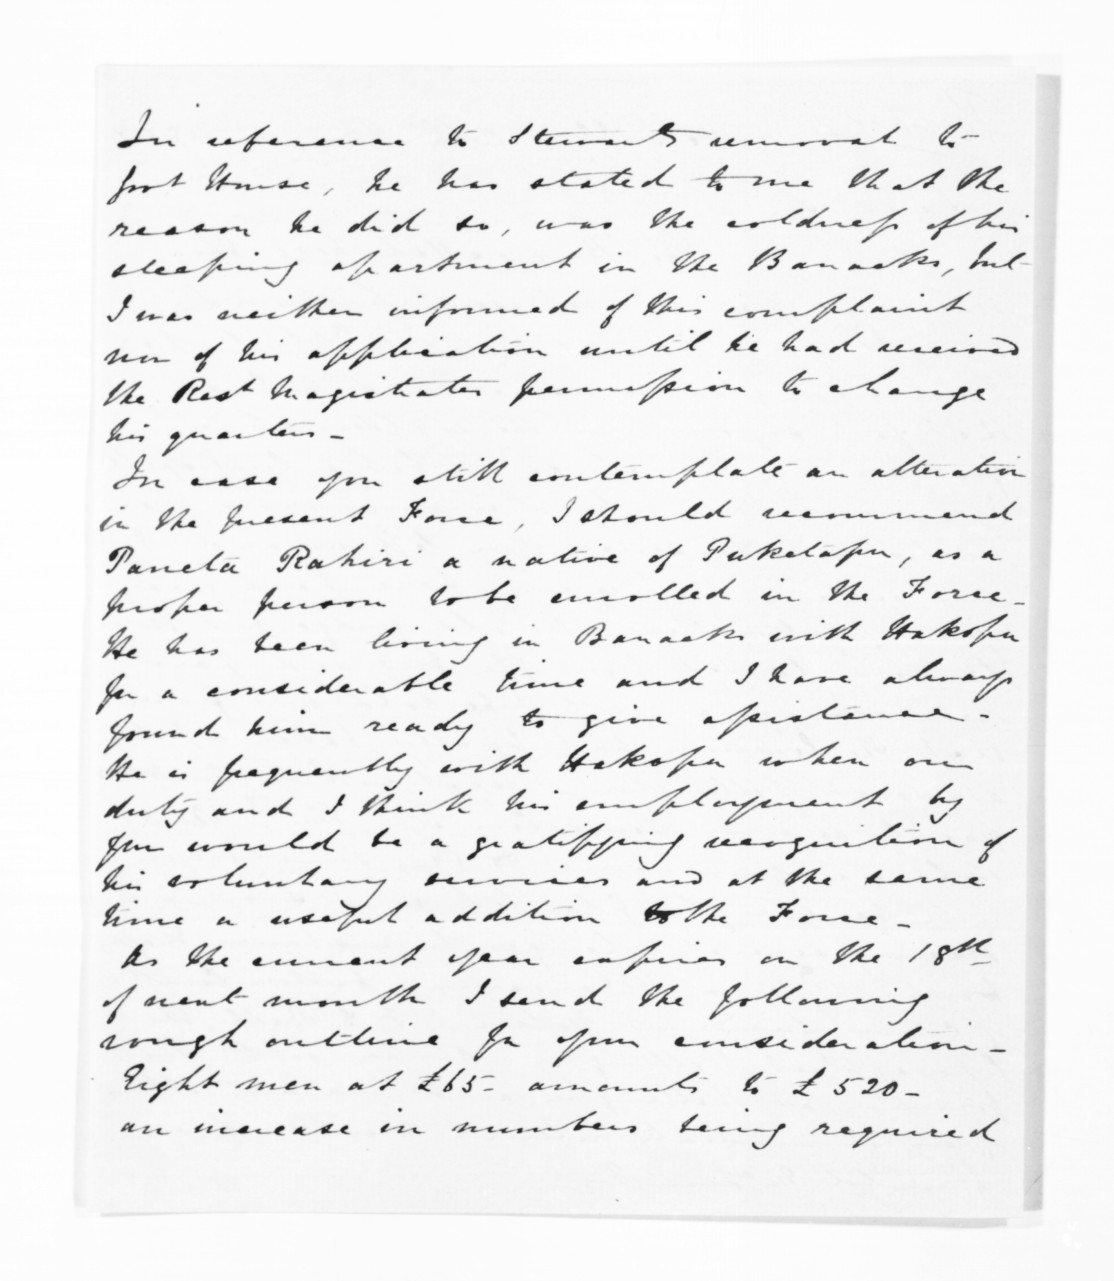 In reference to Stewart's removal to
Govt House, he has stated to me that the
reason he did so, was the coldness of his
sleeping apartment in the Barracks, but
I was neither informed of this complaint
nor of his application until he had received
the Rest Magistrates permission to change
his quarters -
In case you still contemplate an alteration
in the present Force, I should recommend
Paneta Rahiri a native of Puketapu, as a
proper person to be enrolled in the Force -
He has been living in Barracks with Hakopu
for a considerable time and I have always
found him ready to give assistance -
He is frequently with Hakopu when on
duty and I think his employment by
you would be a gratifying recognition of
his voluntary services and at the same
time a useful addition to the Force -
As the current year expires on the 18th
of next month I send the following
rough outline for your consideration -
Eight men at £65 - amounts to £520 -
an increase in numbers being required